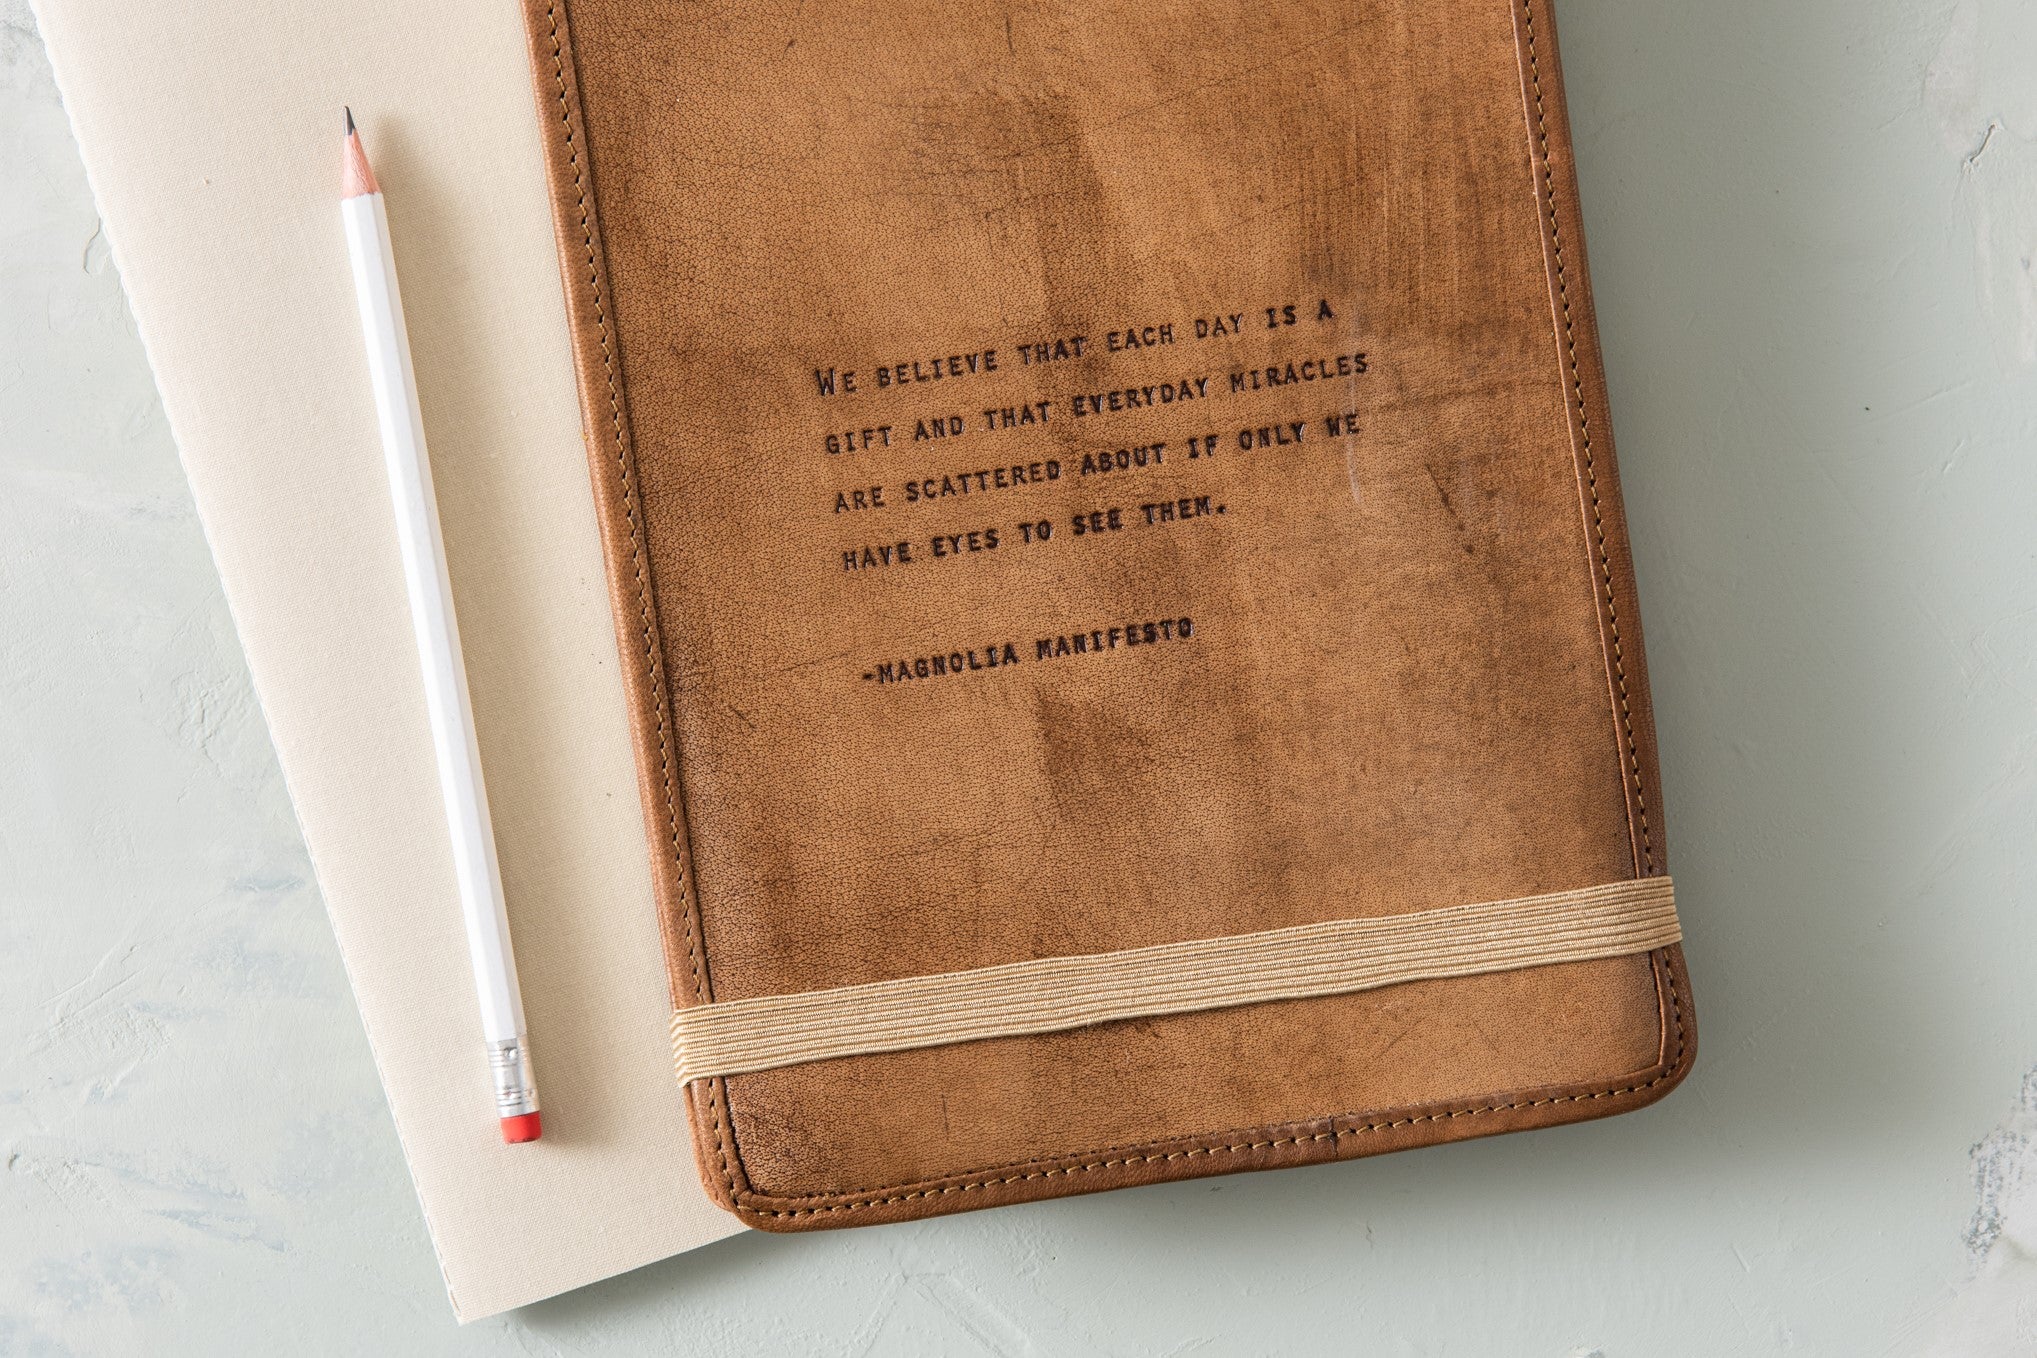 We believe that each day is a
gift and that everyday miracles
are scattered about if only we
have eyes to see them.
-Magnolia Manifesto